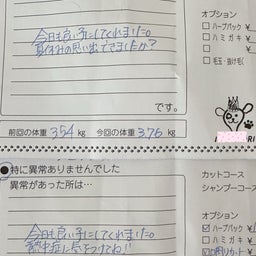 今日も良い子にしてくれました。
夏休みの思い出できましたか？
です。
前回の体重 3.54 kg 今回の体重 3.76 kg
オプション
□ ハーブパック
□ ハミガキ
□
□
□ 毛玉・抜け毛
●特に異常ありませんでした
異常があった所は…
今日も良い子にしてくれました。
熱中症に気をつけてね!!
カットコース
シャンプーコース
オプション
ハーブパック
□ ハミガキ